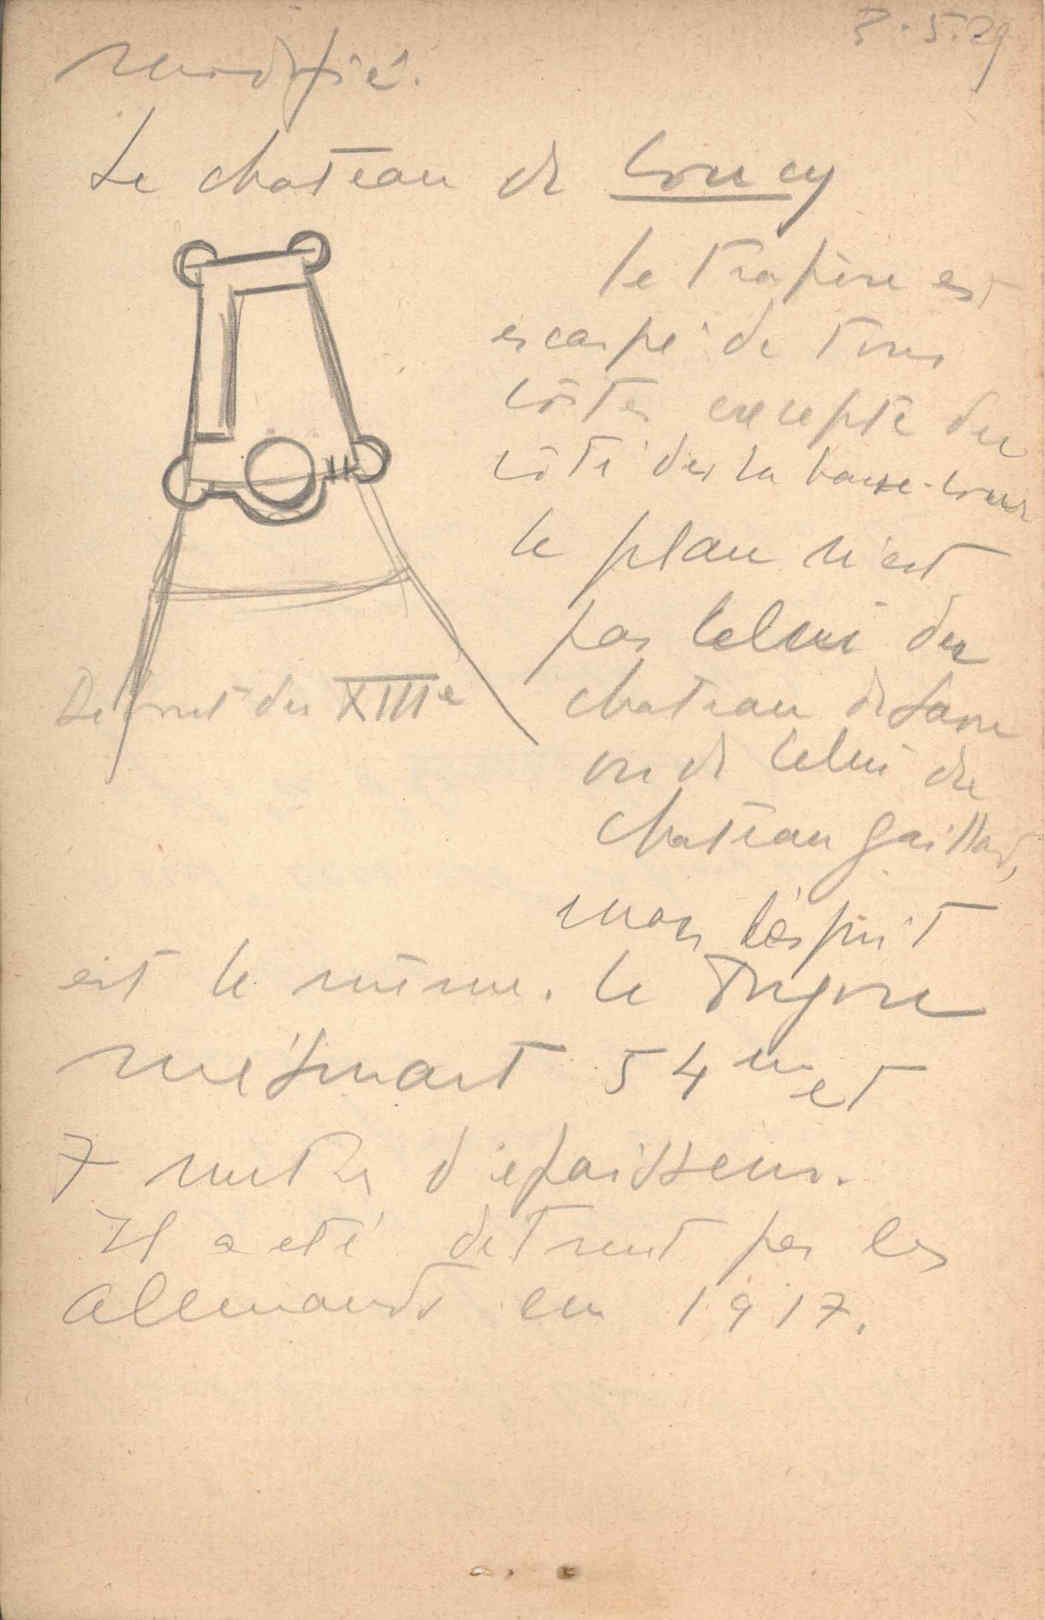 3.5.29
modifié.
Le chateau de Coucy
le trapèze est
escarpé de tous
côtés excepté du
côté de la basse-cour
le plan n'est
pas celui du
Début du XIIIe
chateau de
ou de celui du
chateau Gaillard,
mais l'esprit
est le même. le Donjon
mesurant 54 m et
7 metres d'epaisseur.
Il a eté detruit par les
allemands en 1917.